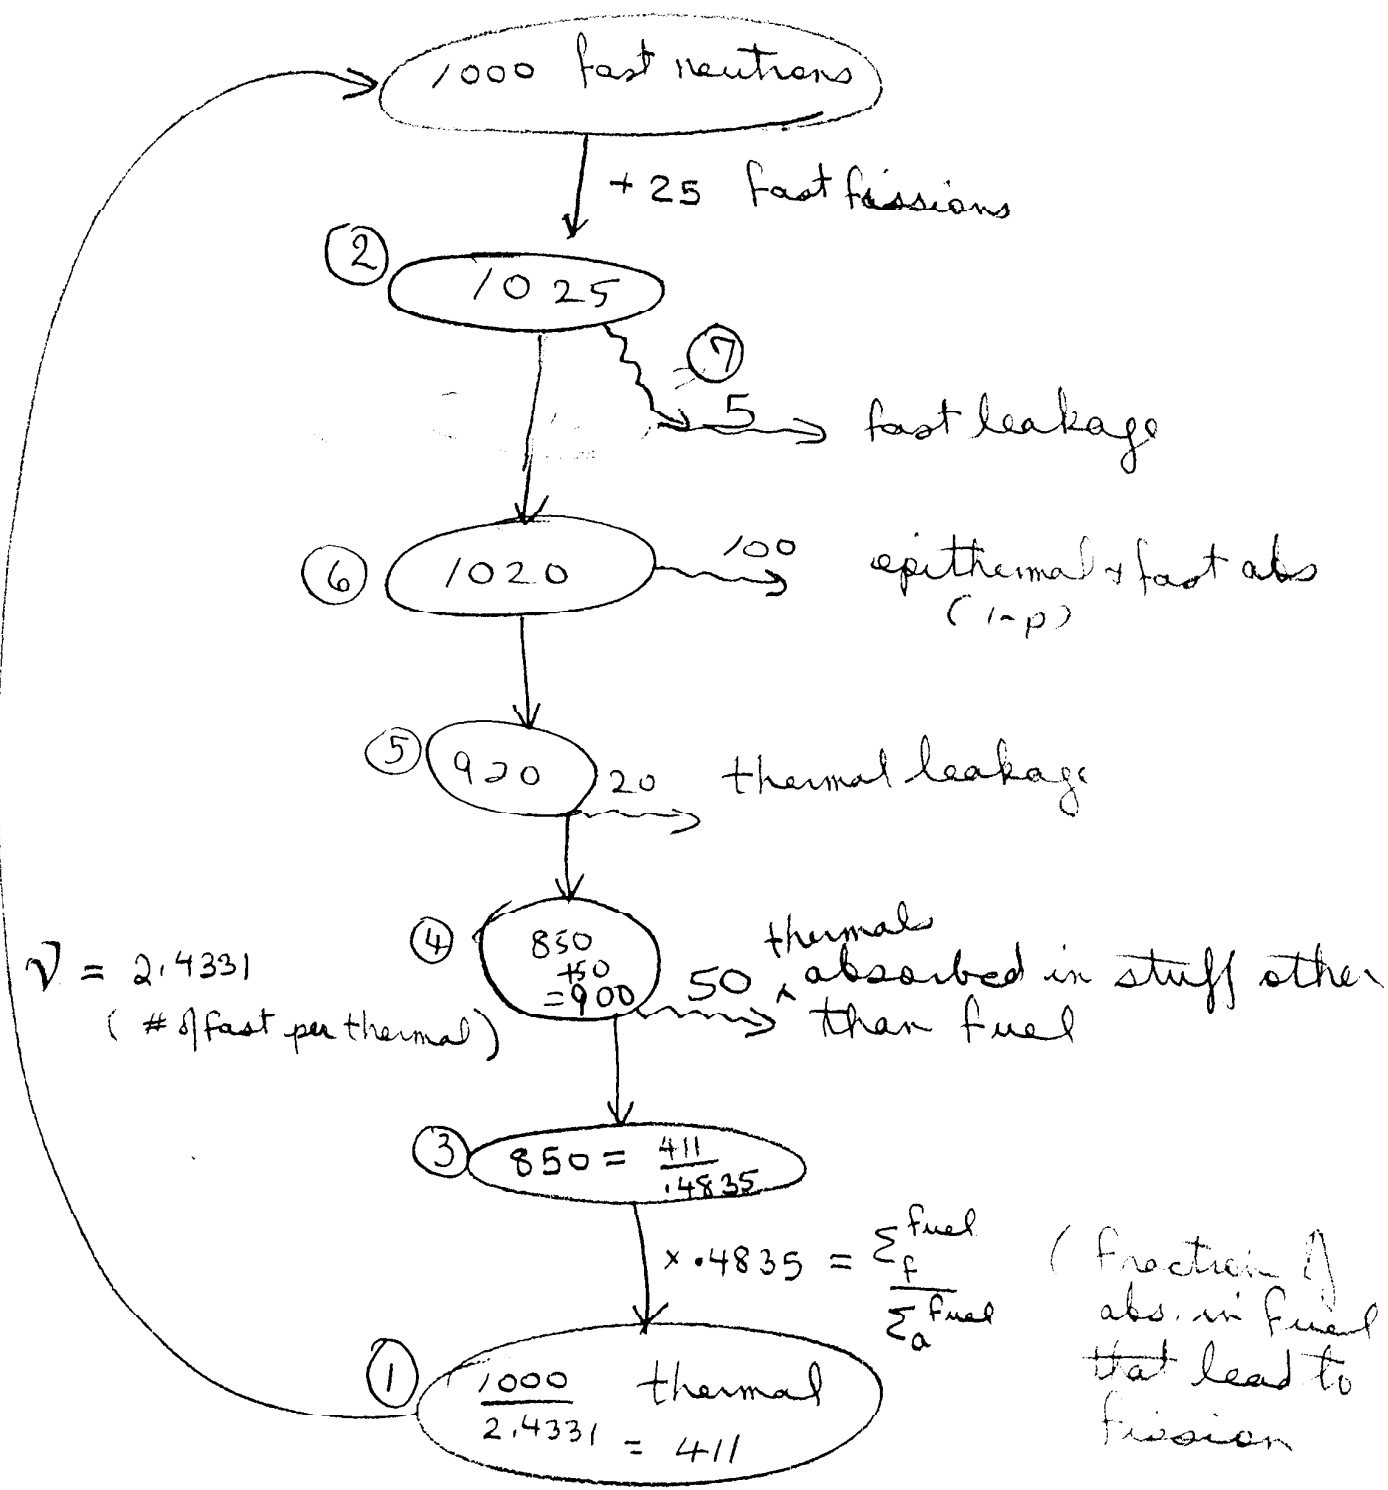 1000 fast neutrons
+ 25 fast fissions
2
1025
7
5
fast leakage
6
1020
100
epithermal & fast abs
(1-p)
5
920
20
thermal leakage
4
850
+50
=900
50
thermals
absorbed in stuff other
than fuel
ν = 2.4331
(# of fast per thermal)
3
850 = 411
.4835
x .4835 = Σf fuel
Σa fuel
(Fraction of
abs. in fuel
that lead to
fission
1
1000 thermal
2.4331 = 411